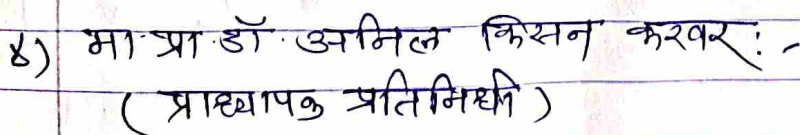 ४) मा. प्रा. डॉ. अनिल किसन करवर :-
( प्राध्यापक प्रतिनिधी )